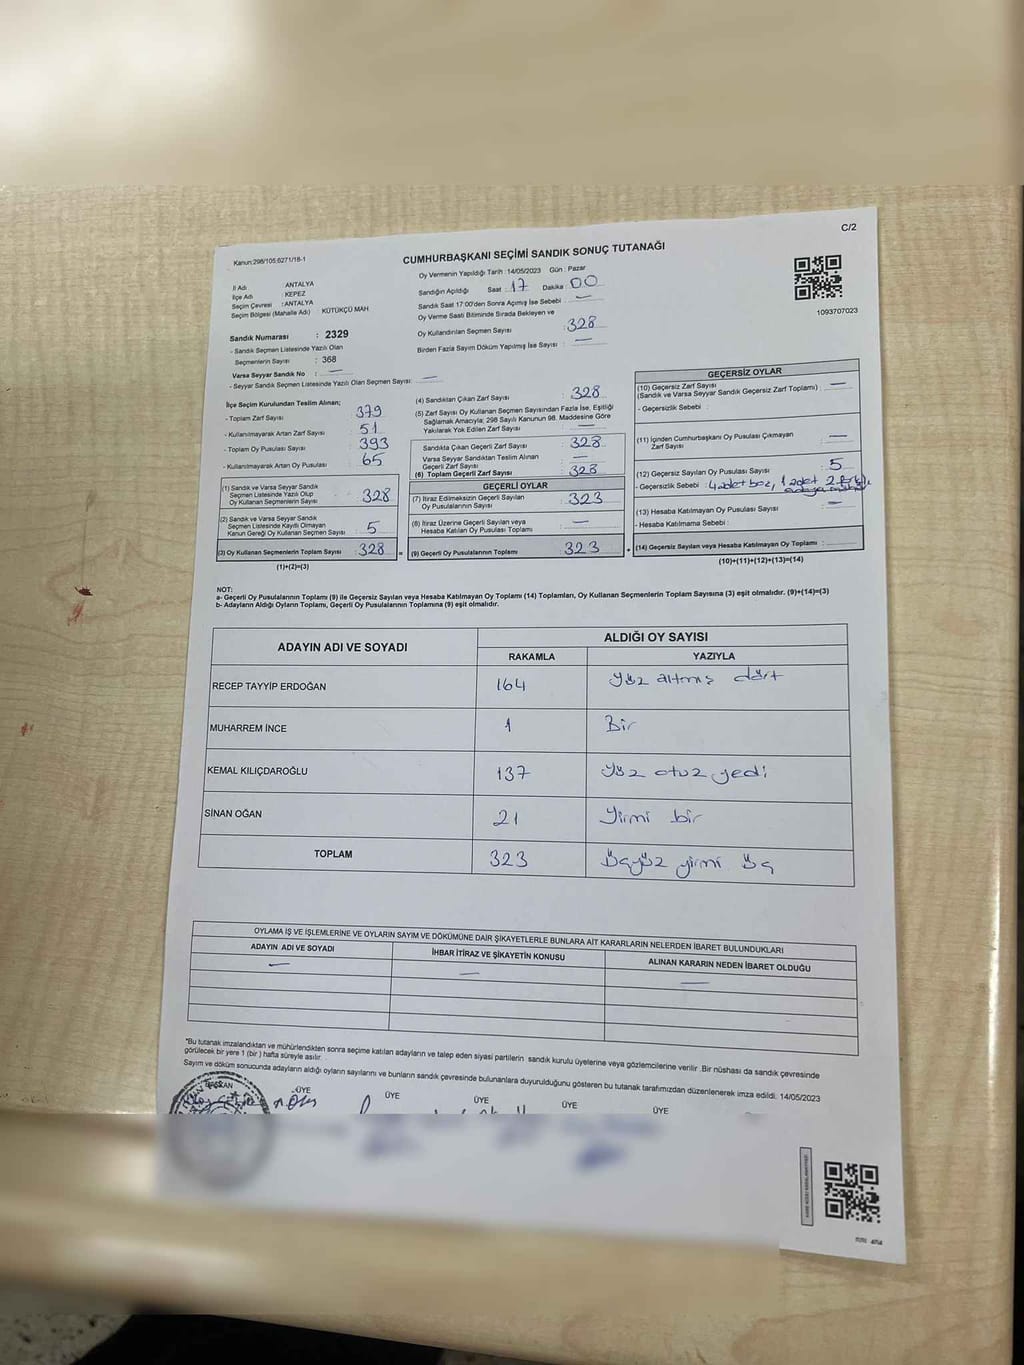 C/2
Kanun:298/105:6271/18-1
CUMHURBAŞKANI SEÇİMİ SANDIK SONUÇ TUTANAĞI
İl Adı : ANTALYA
İlçe Adı : KEPEZ
Seçim Çevresi : ANTALYA
Seçim Bölgesi (Mahalle Adı) KÜTÜKÇÜ MAH
Sandık Numarası : 2329
- Sandık Seçmen Listesinde Yazılı Olan
Seçmenlerin Sayısı : 368
Varsa Seyyar Sandık No : —
- Seyyar Sandık Seçmen Listesinde Yazılı Olan Seçmen Sayısı: —
Oy Vermenin Yapıldığı Tarih :14/05/2023 Gün : Pazar
Sandığın Açıldığı Saat : 17 Dakika 00
Sandık Saat 17:00'den Sonra Açımış İse Sebebi : —
Oy Verme Saati Bitiminde Sırada Bekleyen ve
Oy Kullandırılan Seçmen Sayısı : 328
Birden Fazla Sayım Döküm Yapılmış İse Sayısı : —
1093707023
İlçe Seçim Kurulundan Teslim Alınan;
- Toplam Zarf Sayısı : 379
- Kullanılmayarak Artan Zarf Sayısı : 51
- Toplam Oy Pusulası Sayısı : 393
- Kullanılmayarak Artan Oy Pusulası : 65
(1) Sandık ve Varsa Seyyar Sandık
Seçmen Listesinde Yazılı Olup
Oy Kullanan Seçmenlerin Sayısı : 328
(2) Sandık ve Varsa Seyyar Sandık
Seçmen Listesinde Kayıtlı Olmayan
Kanun Gereği Oy Kullanan Seçmen Sayısı : 5
(3) Oy Kullanan Seçmenlerin Toplam Sayısı : 328 =
(1)+(2)=(3)
(4) Sandıktan Çıkan Zarf Sayısı : 328
(5) Zarf Sayısı Oy Kullanan Seçmen Sayısından Fazla İse, Eşitliği
Sağlamak Amacıyla; 298 Sayılı Kanunun 98. Maddesine Göre
Yakılarak Yok Edilen Zarf Sayısı : —
Sandıkta Çıkan Geçerli Zarf Sayısı : 328
Varsa Seyyar Sandıktan Teslim Alınan
Geçerli Zarf Sayısı : —
(6) Toplam Geçerli Zarf Sayısı : 328
GEÇERLİ OYLAR
(7) İtiraz Edilmeksizin Geçerli Sayılan
Oy Pusulası Sayısı : 323
(8) İtiraz Üzerine Geçerli Sayılan veya
Hesaba Katılan Oy Pusulası Toplamı : —
(9) Geçerli Oy Pusulalarının Toplamı : 323 +
GEÇERSİZ OYLAR
(10) Geçersiz Zarf Sayısı
(Sandık ve Varsa Seyyar Sandık Geçersiz Zarf Toplamı) : —
- Geçersizlik Sebebi :
(11) İçinden Cumhurbaşkanı Oy Pusulası Çıkmayan
Zarf Sayısı : —
(12) Geçersiz Sayılan Oy Pusulası Sayısı : 5
- Geçersizlik Sebebi : 4 adet boş, 1 adet 2
(13) Hesaba Katılmayan Oy Pusulası Sayısı : —
- Hesaba Katılmama Sebebi :
(14) Geçersiz Sayılan veya Hesaba Katılmayan Oy Toplamı :
(10)+(11)+(12)+(13)=(14)
NOT:
a- Geçerli Oy Pusulalarının Toplamı (9) ile Geçersiz Sayılan veya Hesaba Katılmayan Oy Toplamı (14) Toplamları, Oy Kullanan Seçmenlerin Toplam Sayısına (3) eşit olmalıdır. (9)+(14)=(3)
b- Adayların Aldığı Oyların Toplamı, Geçerli Oy Pusulalarının Toplamına (9) eşit olmalıdır.
ADAYIN ADI VE SOYADI ALDIĞI OY SAYISI
RAKAMLA YAZIYLA
RECEP TAYYİP ERDOĞAN 164 Yüz altmış dört
MUHARREM İNCE 1 Bir
KEMAL KILIÇDAROĞLU 137 Yüz otuz yedi
SİNAN OĞAN 21 Yirmi bir
TOPLAM 323 Üçyüz yirmi üç
OYLAMA İŞ VE İŞLEMLERİNE VE OYLARIN SAYIM VE DÖKÜMÜNE DAİR ŞİKAYETLERLE BUNLARA AİT KARARLARIN NELERDEN İBARET BULUNDUKLARI
ADAYIN ADI VE SOYADI İHBAR İTİRAZ VE ŞİKAYETİN KONUSU ALINAN KARARIN NEDEN İBARET OLDUĞU
— — —
*Bu tutanak imzalandıktan ve mühürlendikten sonra seçime katılan adayların ve talep eden siyasi partilerin sandık kurulu üyelerine veya gözlemcilerine verilir .Bir nüshası da sandık çevresinde
görülecek bir yere 1 (bir ) hafta süreyle asılır.
Sayım ve döküm sonucunda adayların aldığı oyların sayılarını ve bunların sandık çevresinde bulunanlara duyurulduğunu gösteren bu tutanak tarafımızdan düzenlenerek imza edildi. 14/05/2023
BAŞKAN ÜYE ÜYE ÜYE ÜYE ÜYE